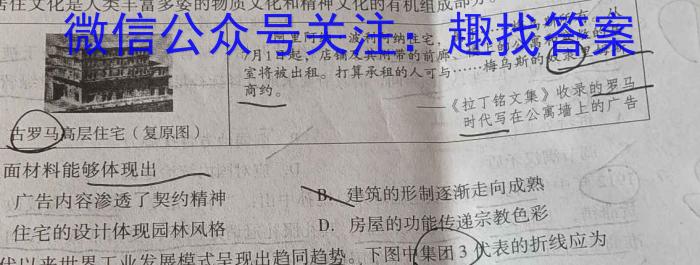 居住文化是人类丰富多姿的物质文化和精神文化的有机组成部分。
微信公众号关注：趣找答案
7月1日起，店铺及其附带的前廊
室将被出租。打算承租的人可与……梅乌斯的奴隶
商约。
——《拉丁铭文集》收录的罗马
时代写在公寓墙上的广告
古罗马高层住宅（复原图）
面材料能够体现出
广告内容渗透了契约精神
B. 建筑的形制逐渐走向成熟
住宅的设计体现园林风格
D. 房屋的功能传递宗教色彩
代以来世界工业发展模式呈现出趋同趋势。下图中集团3代表的折线应为